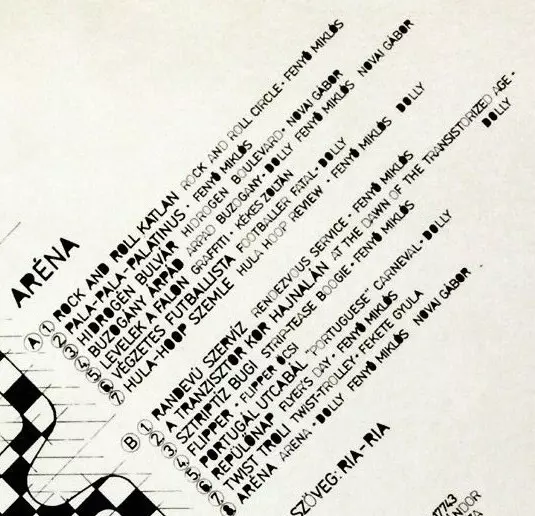 ARÉNA
A
1 ROCK AND ROLL KATLAN ROCK AND ROLL CIRCLE - FENYŐ MIKLÓS
2 PALA-PALA-PALATINUS - FENYŐ MIKLÓS
3 HIDROGÉN BULVÁR HIDROGEN BOULEVARD - NOVAI GÁBOR
4 BUZOGÁNY ÁRPÁD ÁRPÁD BUZOGANY - DOLLY FENYŐ MIKLÓS NOVAI GÁBOR
5 LEVELEK A FALON GRAFFITI - KÉKES ZOLTÁN
6 VÉGZETES FUTBALLISTA FOOTBALLER FATAL - DOLLY
7 HULA-HOOP SZEMLE HULA HOOP REVIEW - FENYŐ MIKLÓS DOLLY
B
1 RANDEVÚ SZERVÍZ RENDEZVOUS SERVICE - FENYŐ MIKLÓS
2 A TRANZISZTOR KOR HAJNALÁN AT THE DAWN OF THE TRANSISTORIZED AGE -
DOLLY
3 SZTRIPTÍZ BUGI STRIP-TEASE BOOGIE - FENYŐ MIKLÓS
4 FLIPPER - FLIPPER ÖCSI
5 PORTUGÁL UTCABÁL "PORTUGUESE" CARNEVAL - DOLLY
6 REPÜLŐNAP FLYER'S DAY - FENYŐ MIKLÓS
7 TWIST TROLI TWIST-TROLLEY - FEKETE GYULA
8 ARÉNA ARENA - DOLLY FENYŐ MIKLÓS NOVAI GÁBOR
SZÖVEG: RIA-RIA
17743